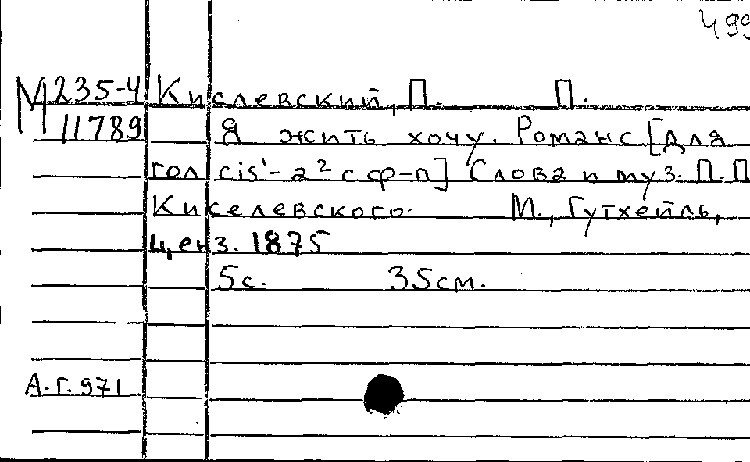 499
М 235-4 Киселевский, П. П.
11789 Я жить хочу. Романс [для
гол cis¹-a² с ф-п] Слова и муз. П. П.
Киселевского. М., Гутхейль,
ценз. 1875
5с. 35см.
А.Г.971